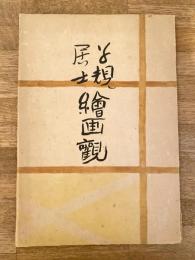 子規
居士
繪画觀